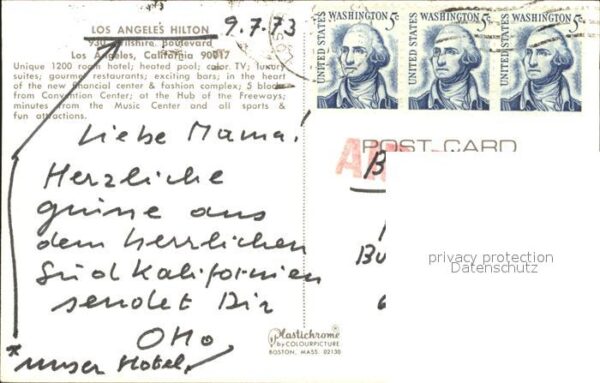 LOS ANGELES HILTON
9.7.73
930 Wilshire Boulevard
Los Angeles, California 90017
Unique 1200 room hotel; heated pool; color TV; luxury
suites; gourmet restaurants; exciting bars; in the heart
of the new financial center & fashion complex; 5 blocks
from Convention Center; at the Hub of the Freeways;
minutes from the Music Center and all sports &
fun attractions.
UNITED STATES WASHINGTON 5c
UNITED STATES WASHINGTON 5c
UNITED STATES WASHINGTON 5c
POST CARD
Liebe Mama!
Herzliche
Grüsse aus
dem herrlichen
Südkalifornien
sendet Dir
Otto
*unser Hotel
privacy protection
Datenschutz
Plastichrome
by COLOURPICTURE
BOSTON, MASS. 02130